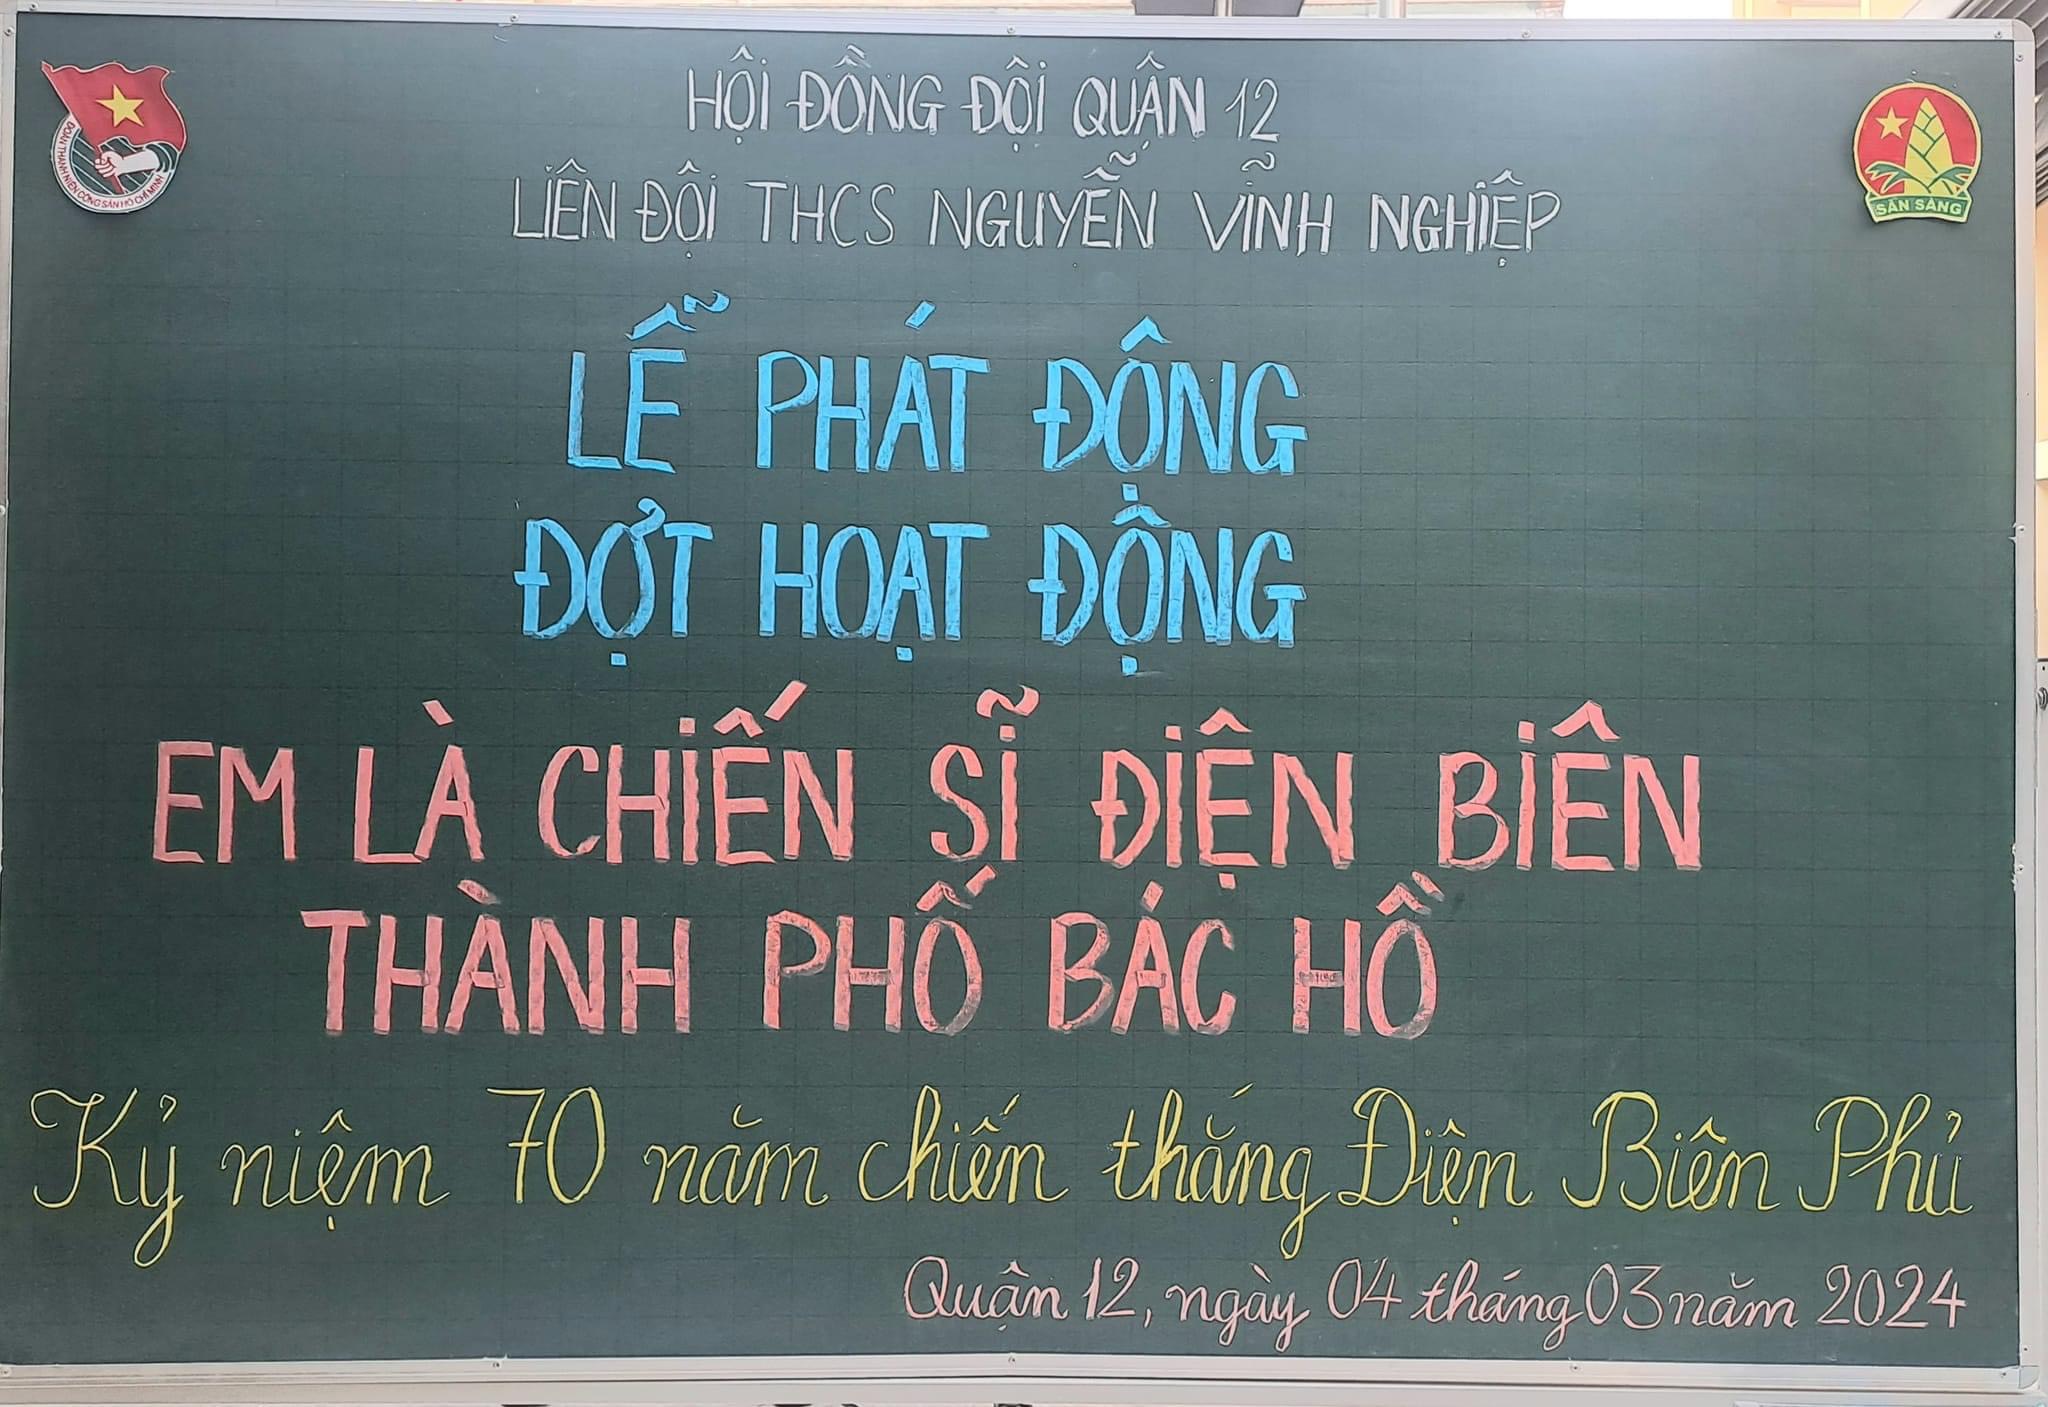 HỘI ĐỒNG ĐỘI QUẬN 12
LIÊN ĐỘI THCS NGUYỄN VĨNH NGHIỆP
ĐOÀN THANH NIÊN CỘNG SẢN HỒ CHÍ MINH
SẴN SÀNG
LỄ PHÁT ĐỘNG
ĐỢT HOẠT ĐỘNG
EM LÀ CHIẾN SĨ ĐIỆN BIÊN
THÀNH PHỐ BÁC HỒ
Kỷ niệm 70 năm chiến thắng Điện Biên Phủ
Quận 12, ngày 04 tháng 03 năm 2024